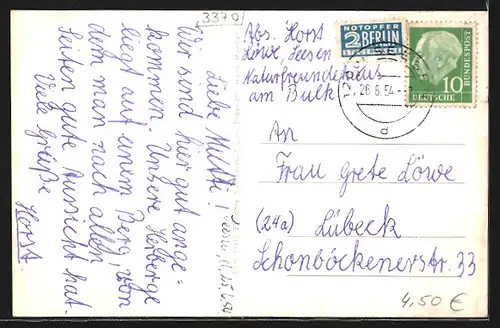 3370
Abs. Horst
Löwe, Seesen
Naturfreundehaus
am Bulk
NOTOPFER
2 BERLIN
STEUERMARKE
DEUTSCHE
BUNDESPOST
10
26.6.54
d
Seesen, d. 25.6.54
Liebe Mutti!
Wir sind hier gut ange-
kommen. Unsere Herberge
liegt auf einem Berg, von
dem man nach allen
Seiten gute Aussicht hat.
Viele Grüße
Horst
An
Frau Grete Löwe
(24a) Lübeck
Schönböckenerstr. 33
4,50 €